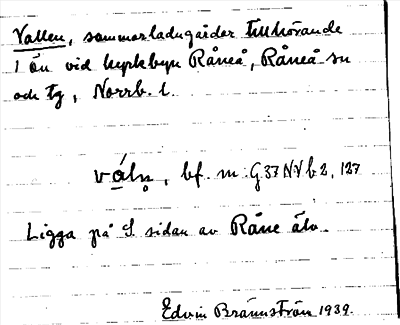 Vallen, sommarladugårdar tillhörande
1 ån vid kyrkbyn Råneå, Råneå sn
och tg, Norrb. l.
våln̥, bf. m. G 37 NV b 2, 127
Ligga på S. sidan av Råne älv.
Edvin Brännström 1939.